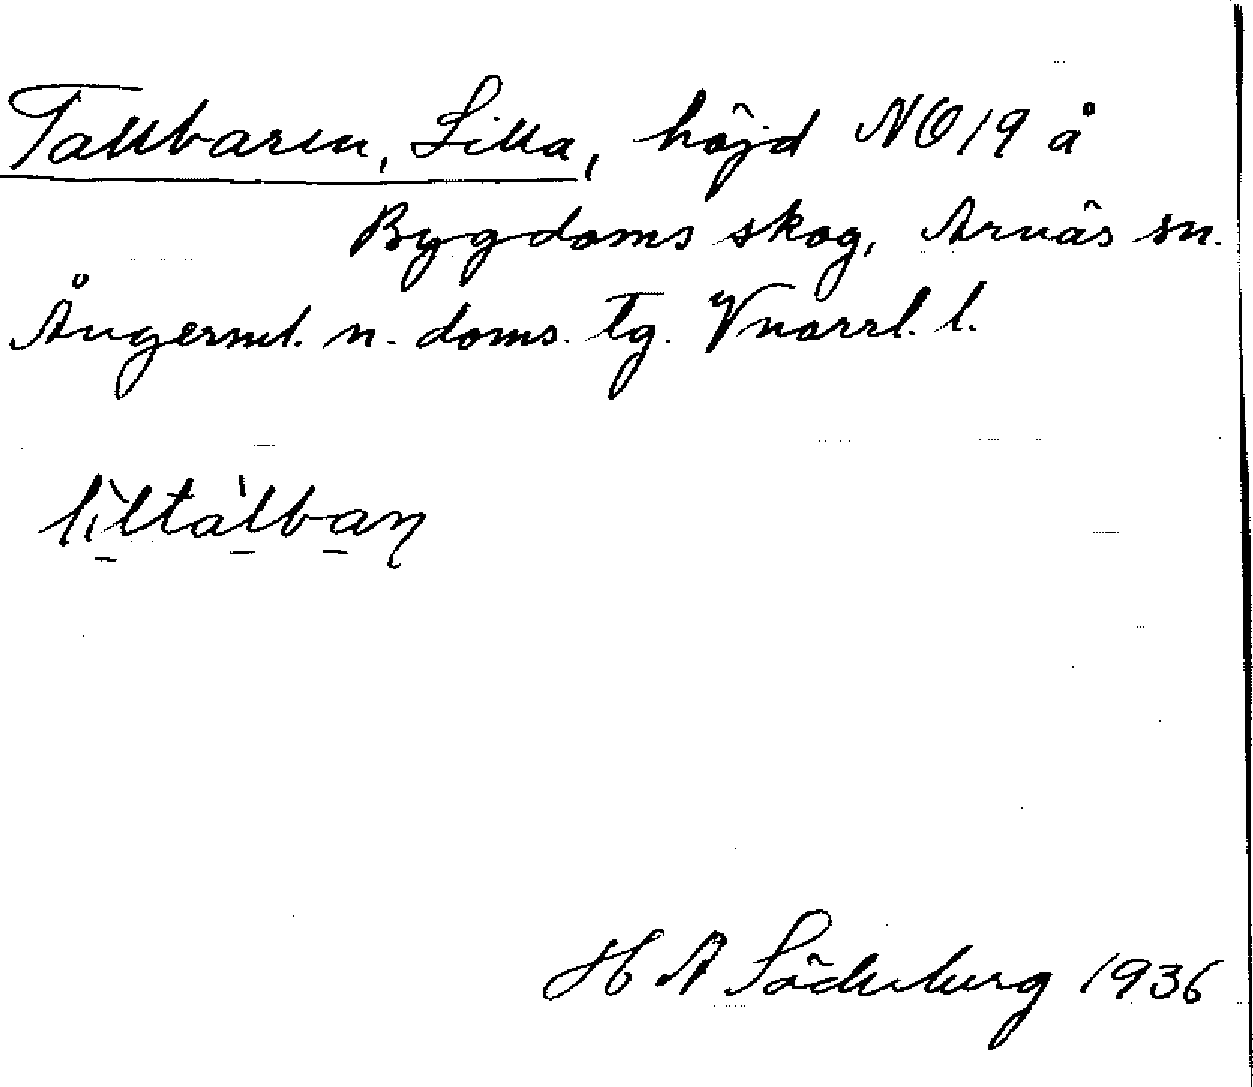 Tallbaren, Lilla, höjd NO 19 å
Bygdoms skog, Arnäs sn.
Ångerml. n. doms. tg. Vnorrl. l.
lìltàlban
H A Söderberg 1936